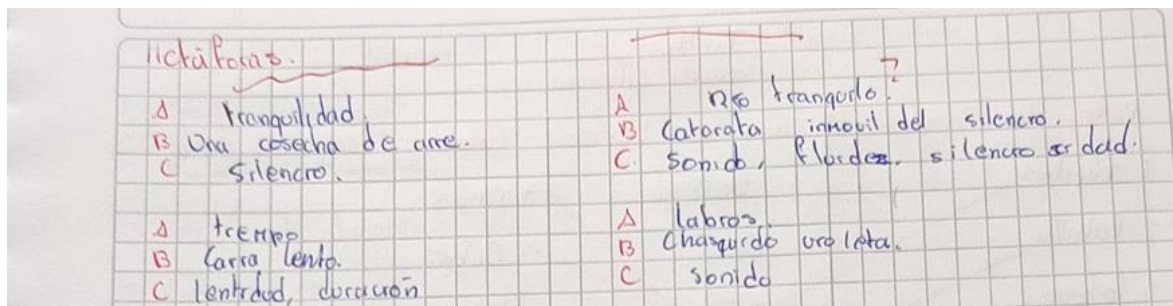 Metáforas.
A tranquilidad
B Una cosecha de aire.
C Silencio.
A tiempo
B Carro lento.
C lentidud, duración
A Río tranquilo?
B Catarata inmovil del silencio.
C. Sonido, fluidez, silencio
A labros.
B Chasquido violeta.
C sonido